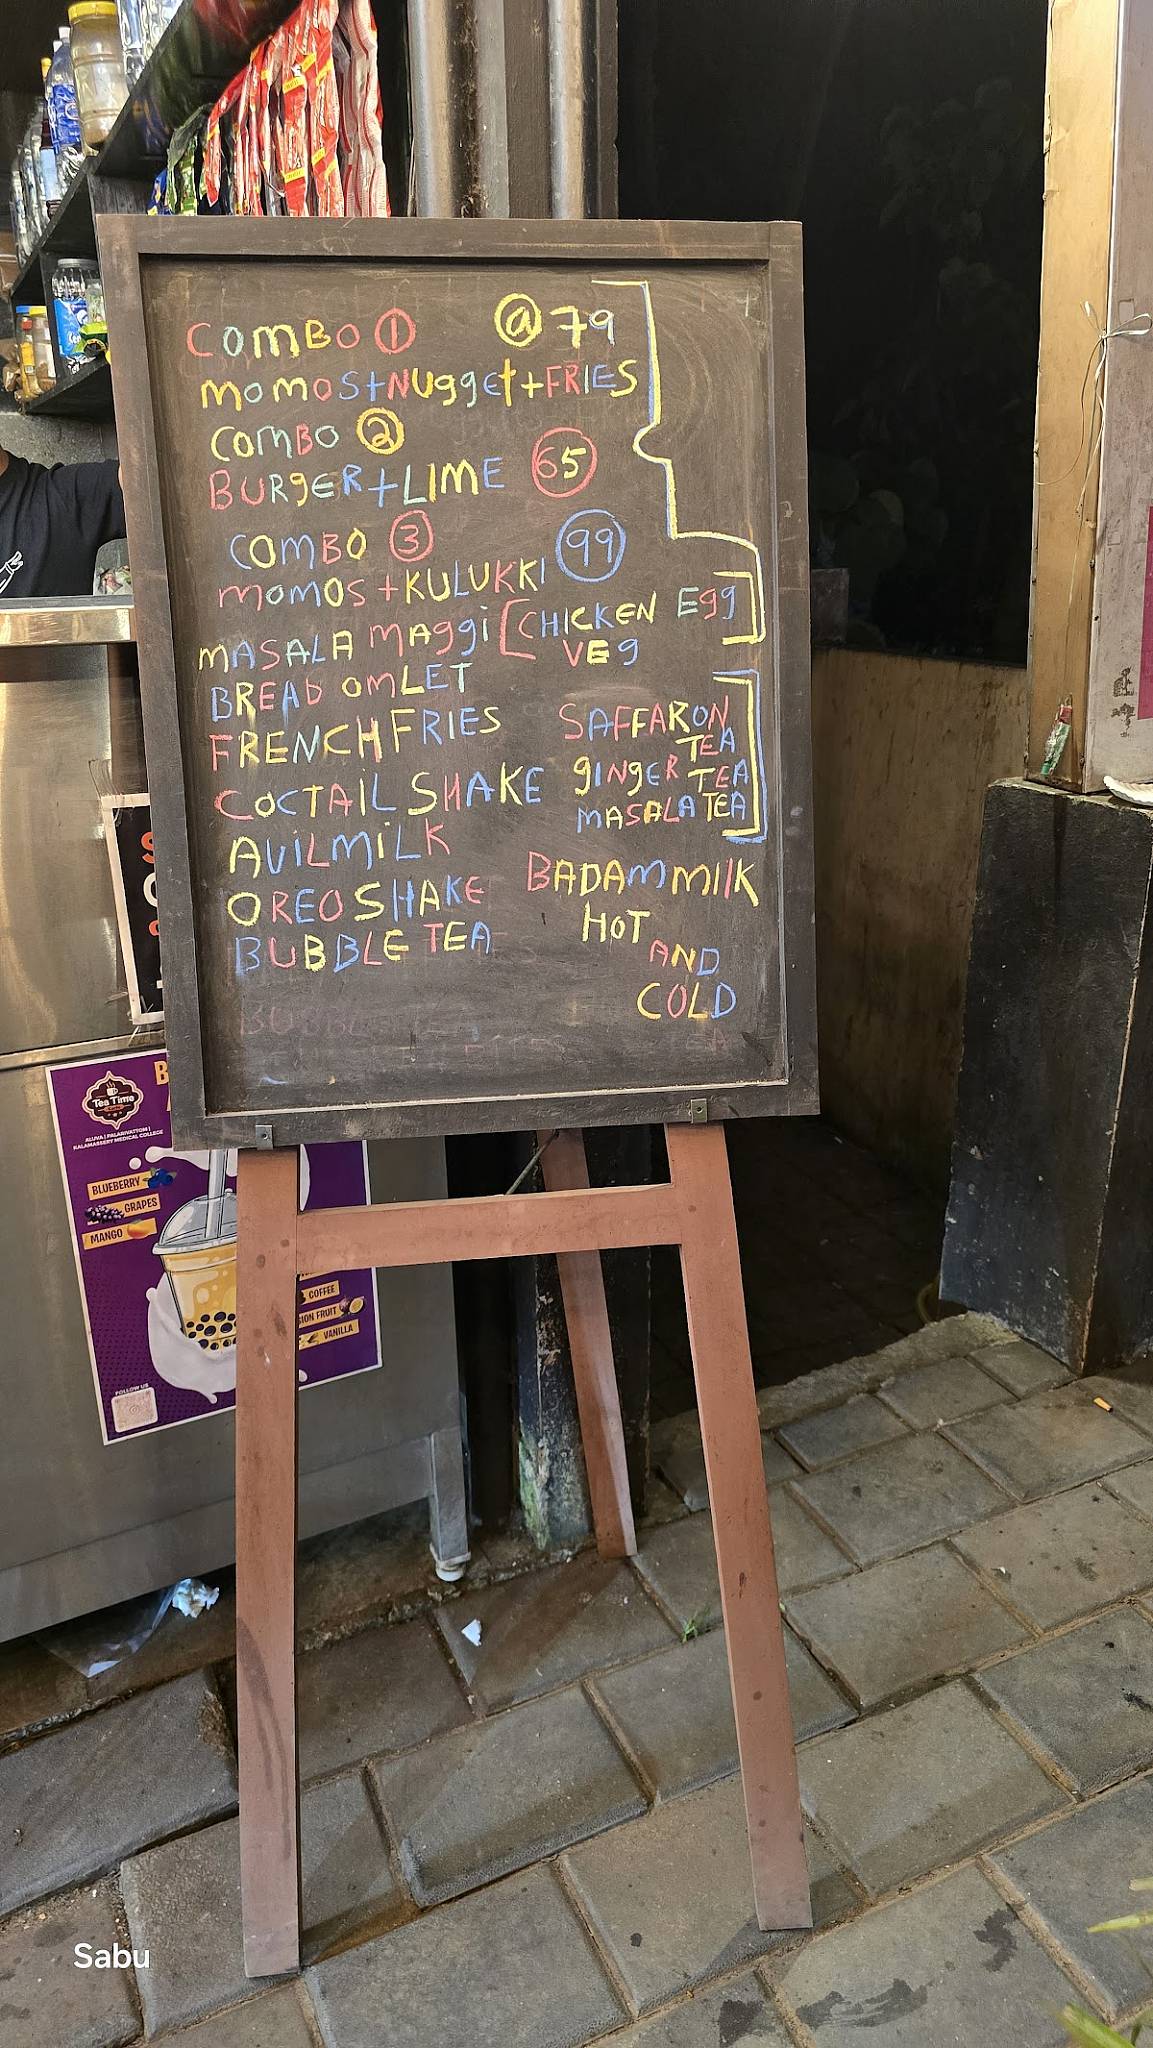 COMBO ① @ 79
MOMOS+NUggEt+FRIES
COMBO ②
BURgER+LIME 65
COMBO ③ 99
MOMOS+KULUKKI
MASALA MAggi [CHICKEN Egg
VEg
BREAD OMLET
FRENCH FRIES
COCTAiL SHAKE
AViLMiLK
OREO SHAKE
BUBBLE TEA
SAFFARON
TEA
gINgER TEA
MASALA TEA
BADAM MILK
HOT
AND
COLD
Tea Time
ALUVA | PALARIVATTOM |
KALAMASSERY MEDICAL COLLEGE
BLUEBERRY
GRAPES
MANGO
COFFEE
VANILLA
FOLLOW US
Sabu